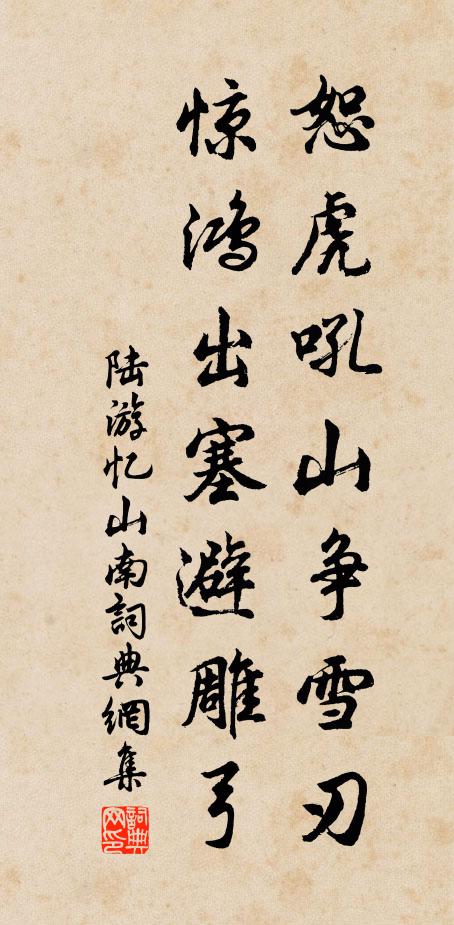 恕虎吼山争雪刃
惊鸿出塞避雕弓
陆游忆山南詞典網集
詞典网印